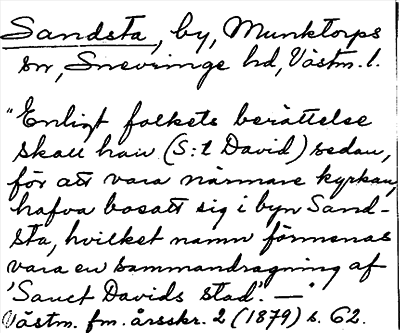 Sandsta, by, Munktorps
sn, Snevringe hd, Västm. l.
"Enligt folkets berättelse
skall han (S:t David) sedan,
för att vara närmare kyrkan,
hafva bosatt sig i byn Sand-
sta, hvilket namn förmenas
vara en sammandragning af
'Sanct Davids stad'. —"
Västm. fm. årsskr. 2 (1879) s. 62.